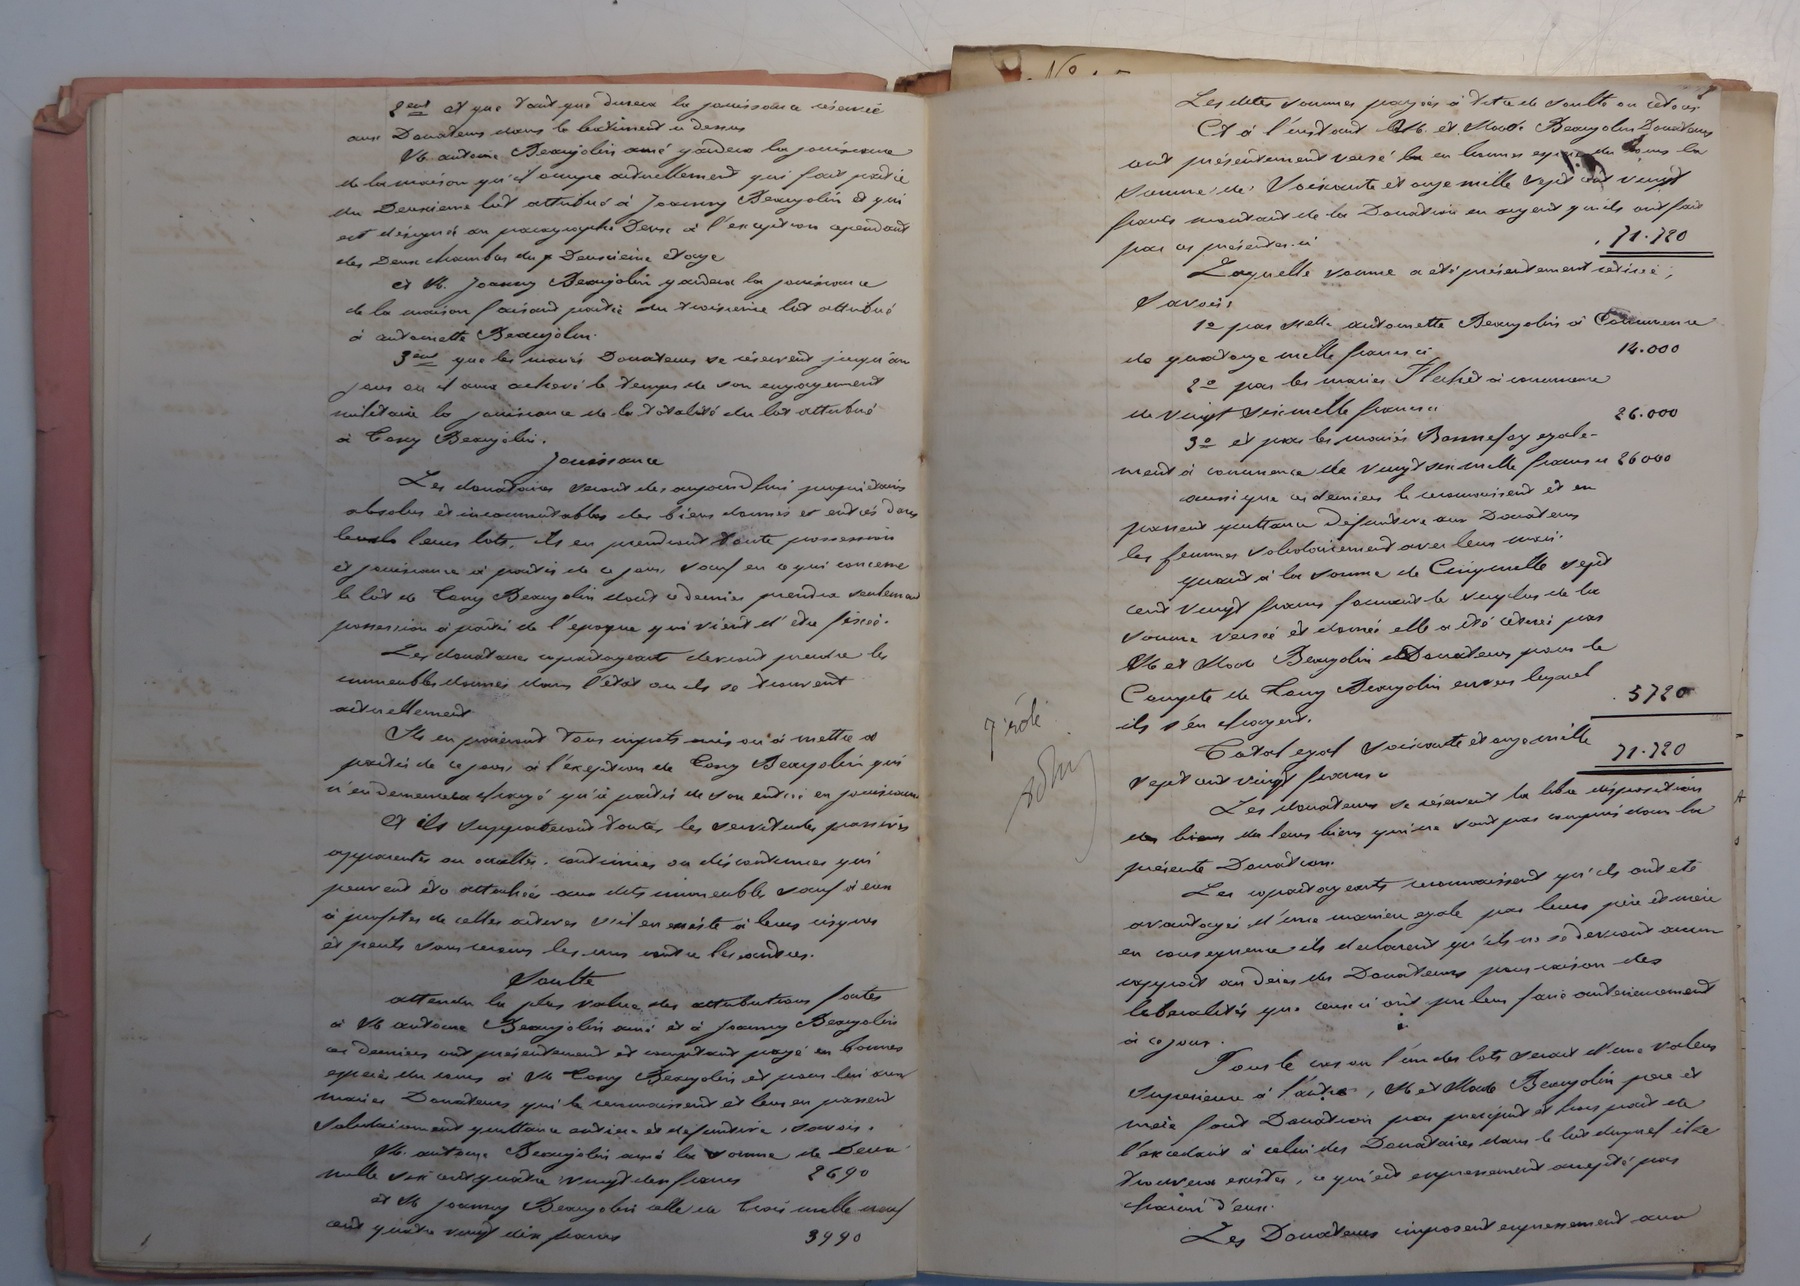 2ent et que tant que durera la jouissance réservée
aux Donateurs dans le batiment ci dessus
M. antoine Beaujolin ainé gardera la jouissance
de la maison qu'il occupe actuellement qui fait partie
du Deuxieme lot attribué à Joanny Beaujolin et qui
est désigné au paragraphe Deux à l'exception cependant
des Deux chambres du Deuxième étage
et M. Joanny Beaujolin gardera la jouissance
de la maison faisant partie du troisieme lot attribué
à antoinette Beaujolin.
3ent que les mariés Donateurs se réservent jusqu'au
jour ou il aura achevé le temps de son engagement
militaire la jouissance de la totalité du lot attribué
à Tony Beaujolin.
Jouissance
Les donataires seront des aujourd'hui propriétaires
absolus et incommutables des biens donnés et entrés dans
leurs lots, ils en prendront toute possession
et jouissance à partir de ce jour, sauf en ce qui concerne
le lot de Tony Beaujolin dont ce dernier prendra seulement
possession à partir de l'epoque qui vient d'être fixée.
Les donataires copartageants devront prendre les
immeubles donnés dans l'état ou ils se trouvent
actuellement
Ils en paieront tous impots mis ou à mettre a
partir de ce jour, à l'exception de Tony Beaujolin qui
n'en demeurera chargé qu'à partir de son entrée en jouissance
Et ils supporteront toutes les servitudes passives
apparentes ou occultes, continues ou discontinues qui
peuvent être attachées aux dits immeubles sauf à eux
à profiter de celles actives s'il en existe à leurs risques
et perils sans recours les uns contre les autres.
Soulte
attendu la plus value des attributions faites
à M. antoine Beaujolin ainé et à Joanny Beaujolin
ces derniers ont présentement et comptant payé en bonnes
especes du cours à M. Tony Beaujolin et pour lui aux
mariés Donateurs qui le reconnaissent et leur en passent
solidairement quittance entiere et definitive, savoir.
M. antoine Beaujolin ainé la somme de Deux
mille six cent quatre vingt dix francs 2690
et M. Joanny Beaujolin celle de Trois mille neuf
cent quatre vingt dix francs 3990
Les dites sommes payées à titre de soulte ou retour
Et à l'instant M. et Made Beaujolin Donateurs
ont présentement versé en bonnes especes du cours la
somme de Soixante et onze mille sept cent vingt
francs montant de la Donation en argent qu'ils ont fait
par ces présentes. ci 71.720
Laquelle somme a été présentement retirée,
Savoir:
1o par Melle antoinette Beaujolin à Concurrence
de quatorze mille francs ci 14.000
2o par les mariés Flachet à concurrence
de vingt six mille francs ci 26.000
3o et par les mariés Bonnefoy egale-
ment à concurrence de vingt six mille francs ci 26000
ainsi que ces derniers le reconnaissent et en
passent quittance définitive aux Donateurs
les femmes solidairement avec leurs maris.
quant à la somme de Cinq mille sept
cent vingt francs formant le surplus de la
somme versée et donnée elle a été retirée par
M et Made Beaujolin Donateurs pour le
Compte de Tony Beaujolin envers lequel
ils s'en chargent. 5720
Total egal Soixante et onze mille
sept cent vingt francs ci 71.720
7e rôle
Les donateurs se réservent la libre disposition
de leurs biens qui ne sont pas compris dans la
présente Donation.
Les copartageants reconnaissent qu'ils ont eté
avantagés d'une maniere egale par leurs père et mère
en consequence ils declarent qu'ils ne se devront aucun
rapport au deces des Donateurs pour raison des
liberalités que ceux ci ont pu leur faire anterieurement
à ce jour.
Pour le cas ou l'un des lots serait d'une valeur
superieure à l'autre, M et Made Beaujolin père et
mère font Donation par preciput et hors part de
l'excedant à celui des Donataires dans le lot duquel il se
trouvera exister, ce qui est expressement accepté par
chacun d'eux.
Les Donateurs imposent expressement aux